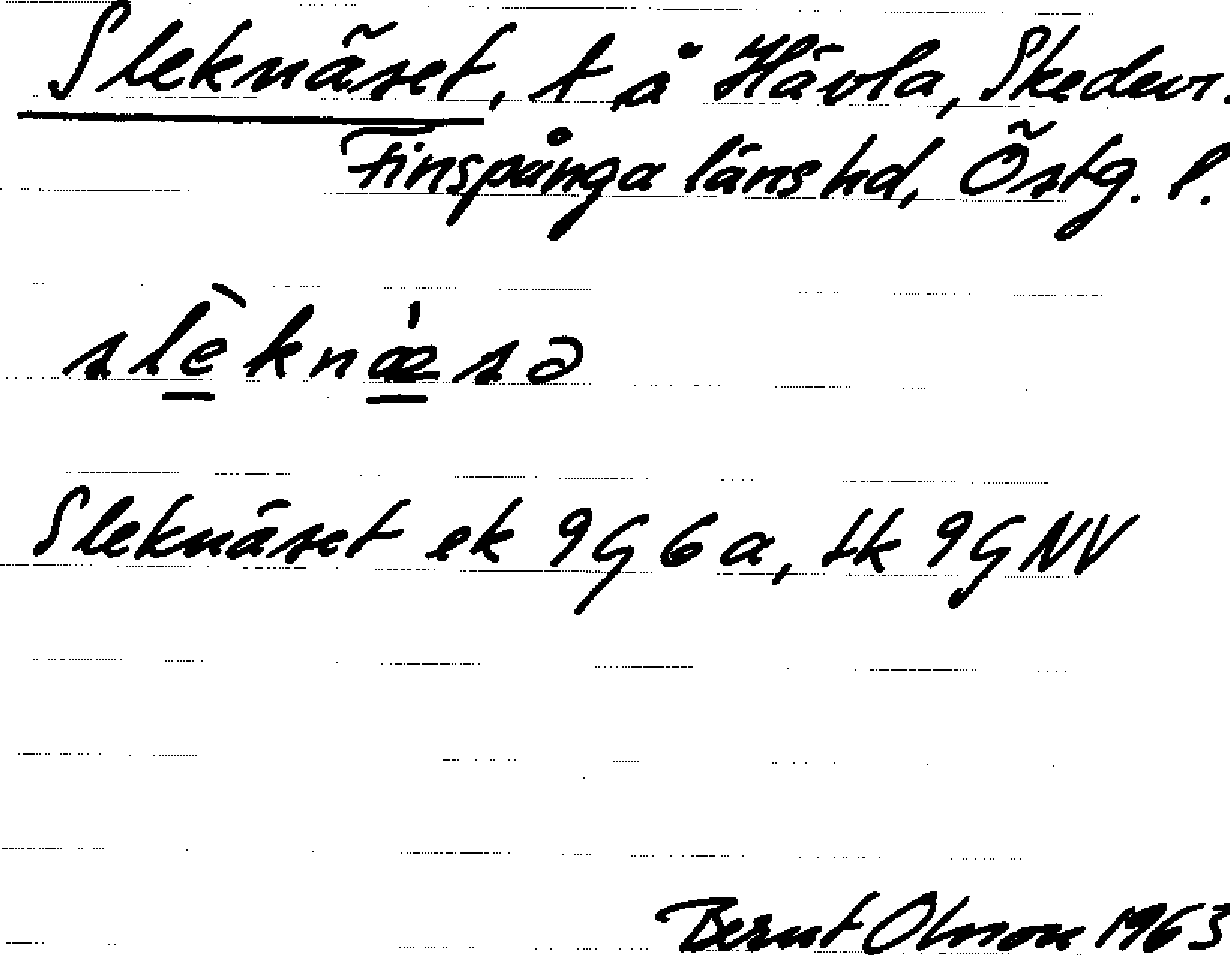 Sleknäset, t å Hävla, Skedevi.
Finspånga länshd, Östg. l.
slèknæ̀sə
Sleknäset ek 9G6a, tk 9GNV
Bernt Olsson 1963